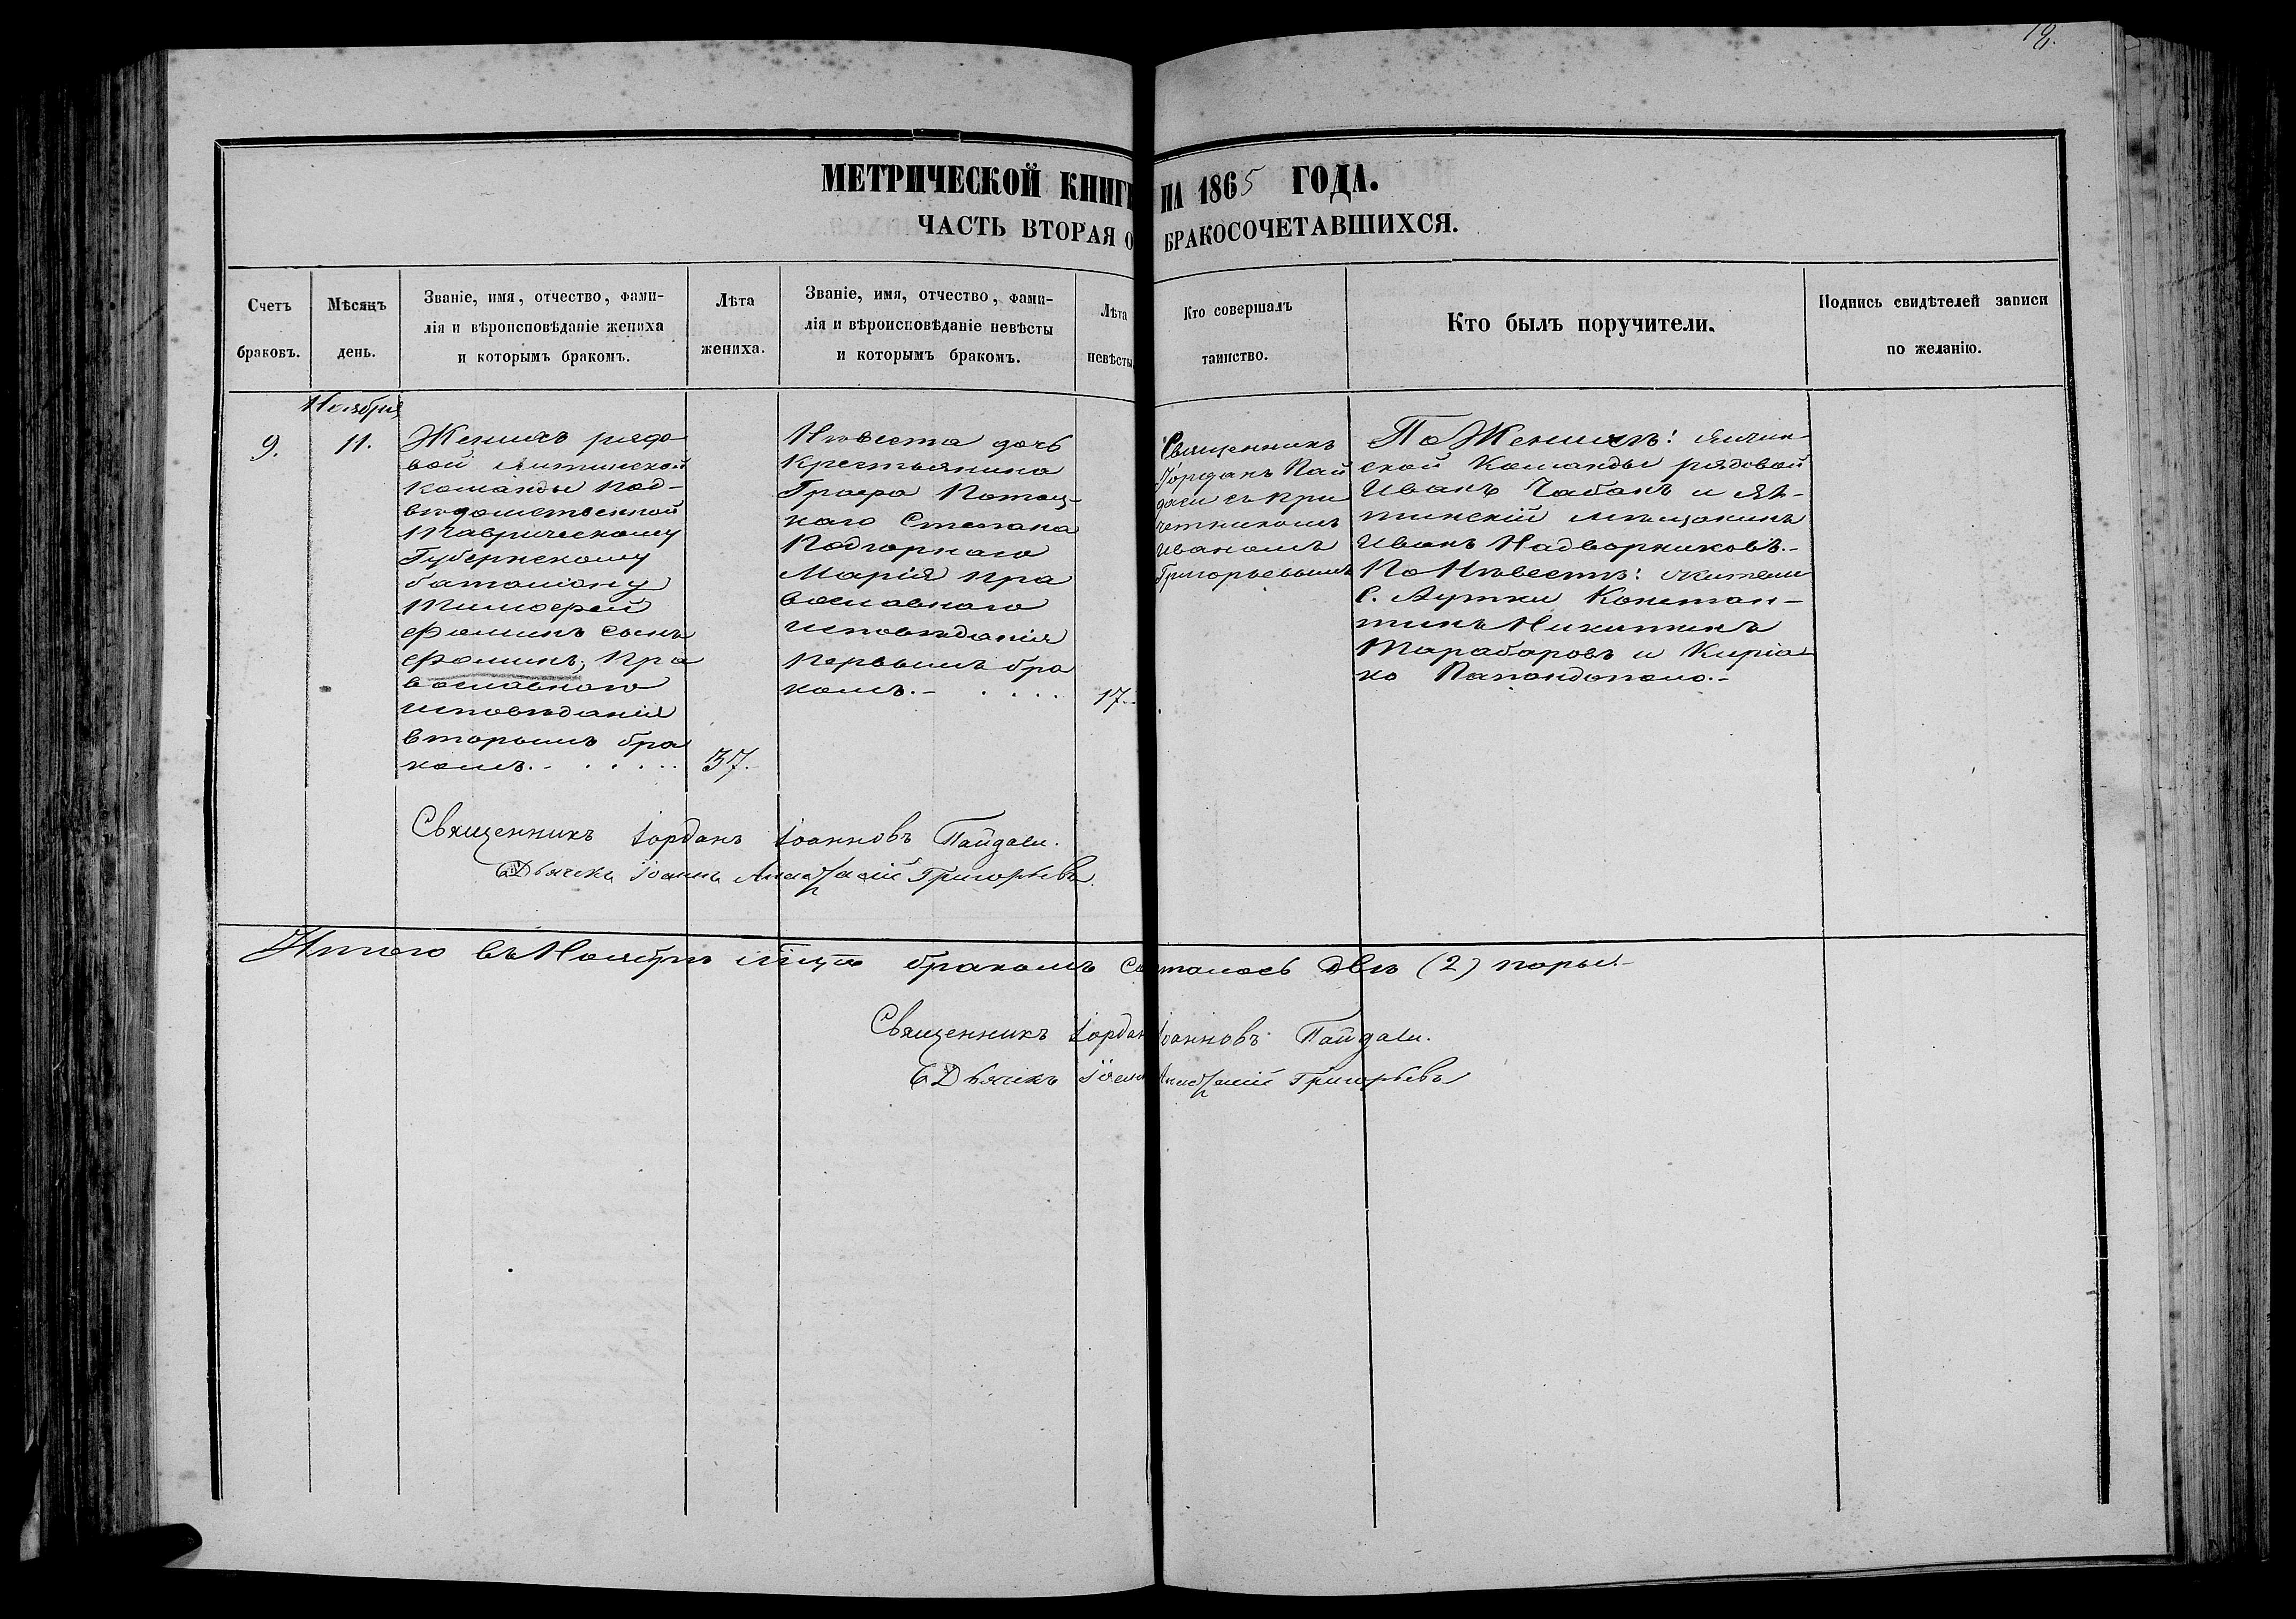 18.
МЕТРИЧЕСКОЙ КНИГИ НА 1865 ГОДА.
ЧАСТЬ ВТОРАЯ О БРАКОСОЧЕТАВШИХСЯ.
Счетъ
браковъ.
Мѣсяцъ
день.
Званіе, имя, отчество, фами-
лія и вѣроисповѣданіе жениха
и которымъ бракомъ.
Лѣта
жениха.
Званіе, имя, отчество, фами-
лія и вѣроисповѣданіе невѣсты
и которымъ бракомъ.
Лѣта
невѣсты.
Кто совершалъ
таинство.
Кто былъ поручители.
Подпись свидѣтелей записи
по желанію.
9.
Ноября
11.
Женихъ рядо-
вой Ялтинской
команды под-
вѣдомственной
Таврическому
Губернскому
баталіону
Тимофей
Фоминъ сынъ
Фоминъ, пра
вославнаго
исповѣданія
вторымъ бра
комъ.- . . . . .
37.
Невѣста дочь
Крестьянина
Графа Потоц-
каго Степана
Подгорнаго
Марія пра
вославнаго
исповѣданія
первымъ бра
комъ.- . . . .
17.-
Священникъ
Іорданъ Пай
даси съ при
четникомъ
Иваномъ
Григорьевымъ
По Женихѣ: Ялтин-
ской Команды рядовой
Иванъ Чабанъ и Ял-
тинскій мѣщанинъ
Иванъ Надворниковъ.-
По Невѣстѣ: жители
с. Аутки Констан-
тинъ Никитинъ
Тарабаровъ и Киріа-
ко Папандопало.-
Священникъ Іорданъ Іоанновъ Пайдаси.
Дьячекъ Іоаннъ Григорьевъ.
Итого въ Ноябрѣ м͞цѣ бракомъ сочеталось двѣ (2) пары.-
Священникъ Іорданъ Іоанновъ Пайдаси.
Дьячекъ Іоаннъ Григорьевъ